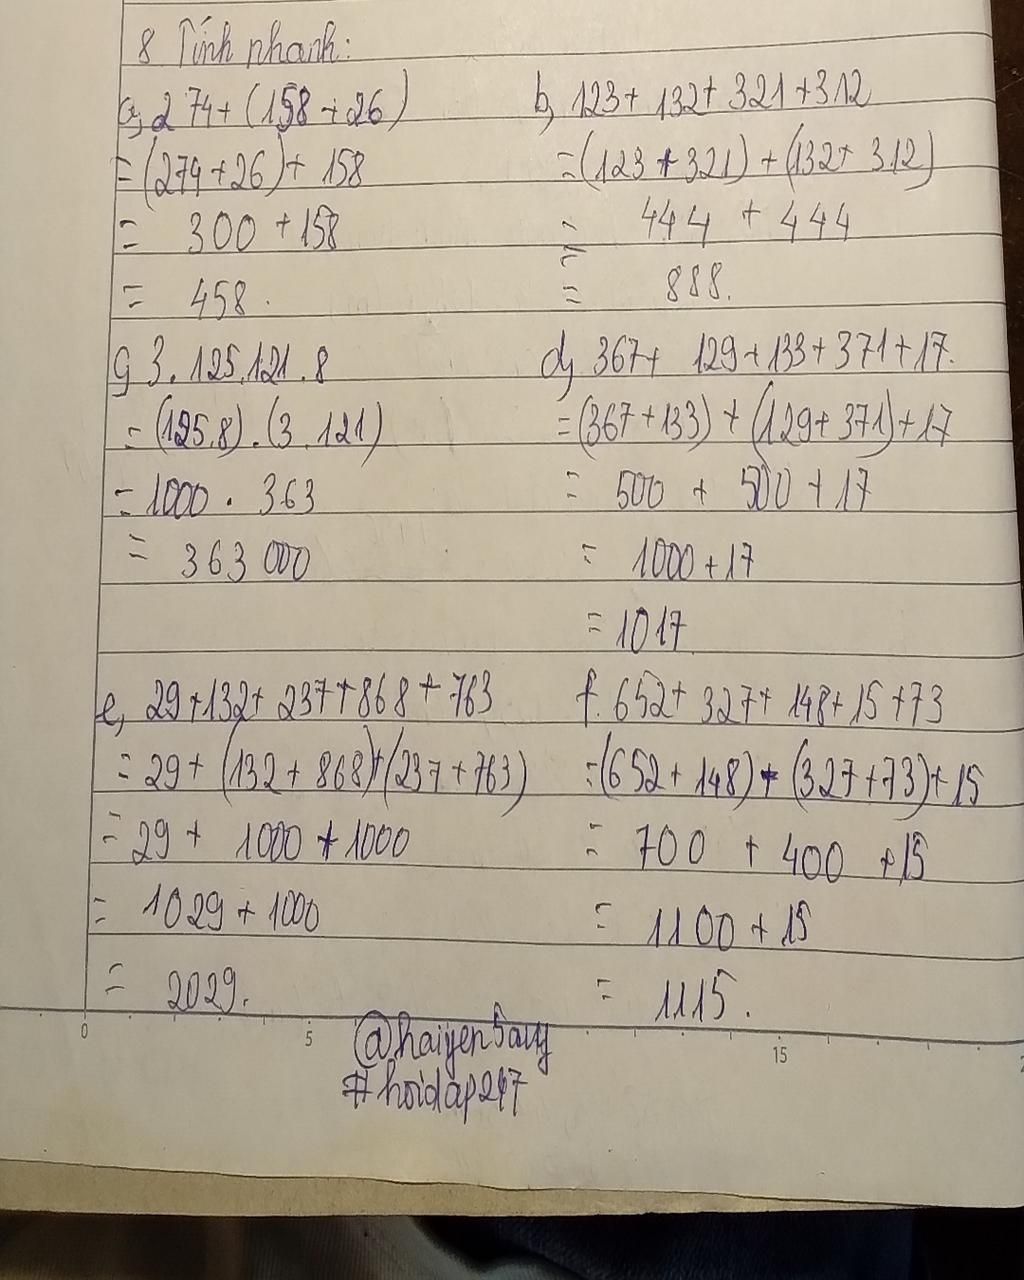 8 Tính nhanh:
a, 274 + (158 + 26)
= (274 + 26) + 158
= 300 + 158
= 458.
b, 123 + 132 + 321 + 312
= (123 + 321) + (132 + 312)
= 444 + 444
=
= 888.
c, 3 . 125 . 121 . 8
= (125.8) . (3 . 121)
= 1000 . 363
= 363 000
d, 367 + 129 + 133 + 371 + 17.
= (367 + 133) + (129 + 371) + 17
= 500 + 500 + 17
= 1000 + 17
= 1017
e, 29 + 132 + 237 + 868 + 763
= 29 + (132 + 868) + (237 + 763)
= 29 + 1000 + 1000
= 1029 + 1000
= 2029.
f. 652 + 327 + 148 + 15 + 73
= (652 + 148) + (327 + 73) + 15
= 700 + 400 + 15
= 1100 + 15
= 1115.
0 5 15
#hoidap247